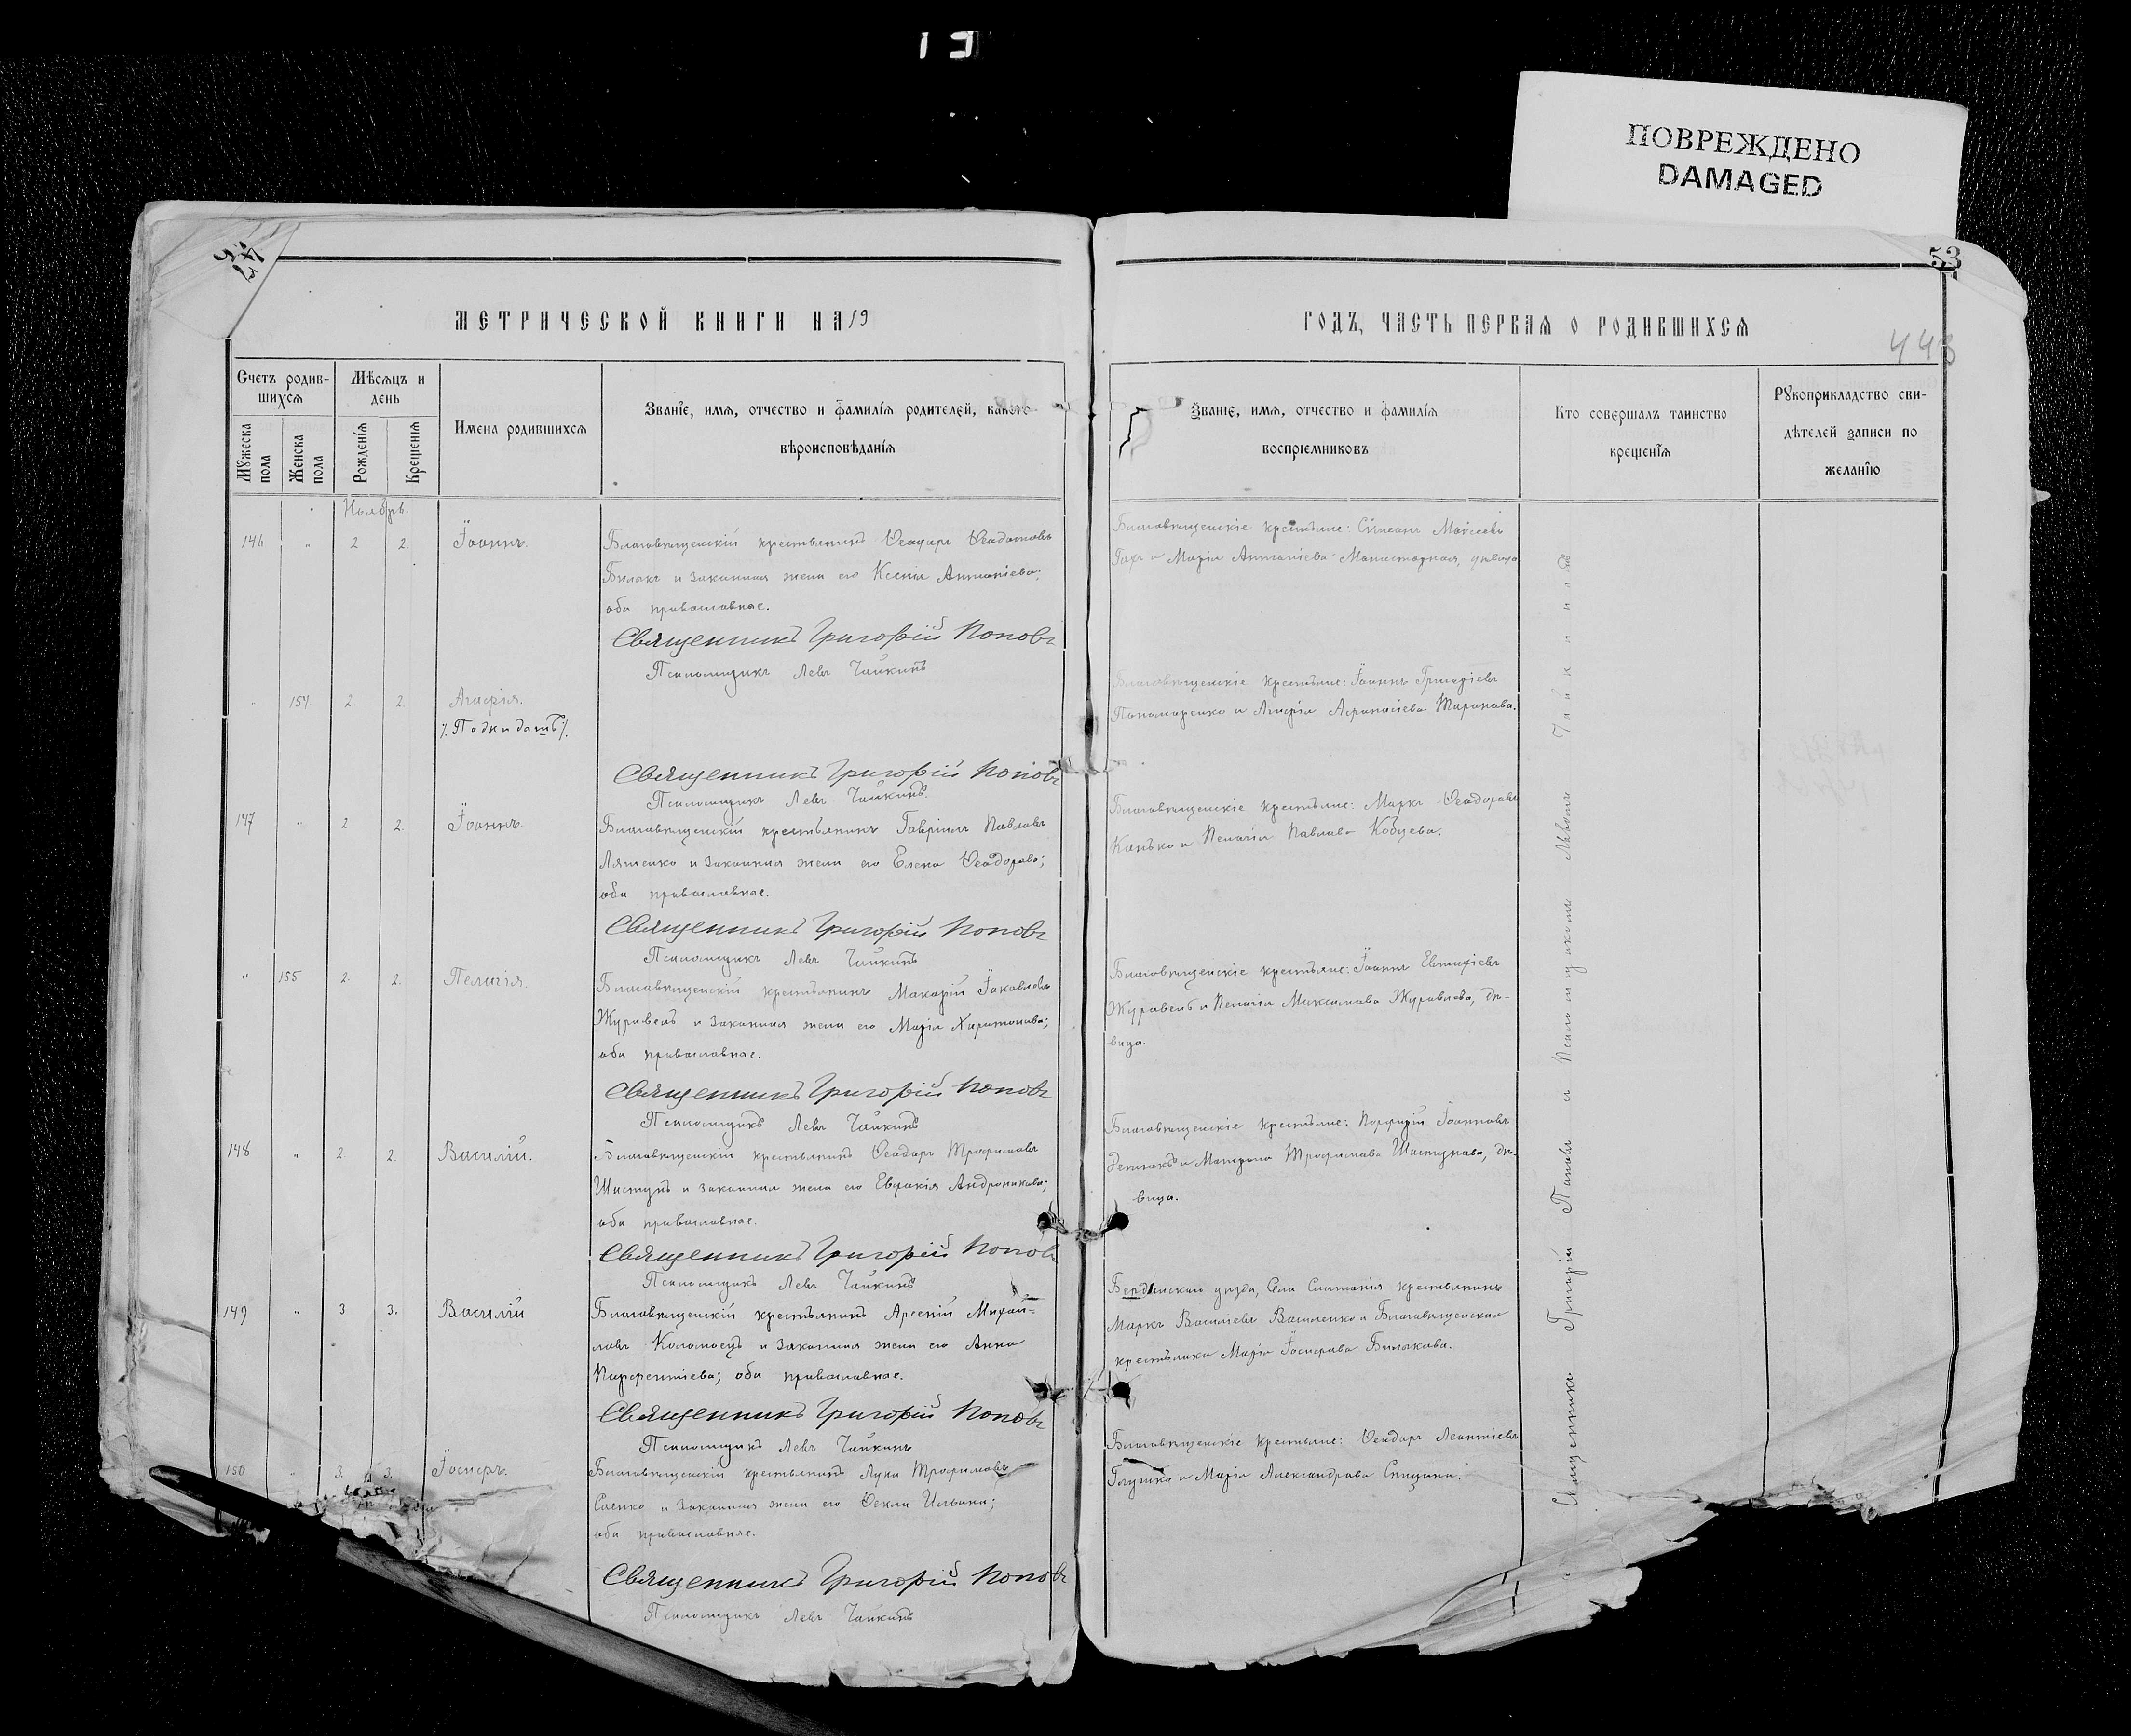 ПОВРЕЖДЕНО
DAMAGED
53
МЕТРИЧЕСКОЙ КНИГИ НА 19
ГОДЪ, ЧАСТЬ ПЕРВАЯ О РОДИВШИХСЯ
448
Счетъ родив-
шихся
Мѣсяцъ и
день
Мужеска
пола
Женска
пола
Рожденія
Крещенія
Имена родившихся
Званіе, имя, отчество и фамилія родителей, какого
вѣроисповѣданія
Званіе, имя, отчество и фамилія
воспріемниковъ
Кто совершалъ таинство
крещенія
Рукоприкладство сви-
дѣтелей записи по
желанію
Ноябрь.
146 " 2 2. Іоаннъ.
Благовѣщенскій крестьянинъ Ѳеодоръ
Билакъ и законная жена его Ксенія Антоніева;
оба православные.
Священникъ Григорій Поповъ
Псаломщикъ Левъ Чайкинъ
Благовѣщенскіе крестьяне: Сѵмеонъ Моисеевъ
и Марія
" 154 2. 2. Агафія.
/. Подкидатъ /.
Священникъ Григорій Поповъ
Псаломщикъ Левъ Чайкинъ.
Благовѣщенскіе крестьяне: Іоаннъ Григоріевъ
Пономаренко и Агафія Афанасіева Таранова.
147 " 2 2. Іоаннъ.
Благовѣщенскій крестьянинъ Гавріилъ Павловъ
Ляшенко и законная жена его Елена Ѳеодорова;
оба православные.
Священникъ Григорій Поповъ
Псаломщикъ Левъ Чайкинъ
Благовѣщенскіе крестьяне: Маркъ Ѳеодоровъ
Канъко и Пелагія Павлова Кобцева.
" 155 2. 2. Пелагія.
Благовѣщенскій крестьянинъ Макарій Іаковлевъ
Журавель и законная жена его Марія Харитонова;
оба православные.
Священникъ Григорій Поповъ
Псаломщикъ Левъ Чайкинъ
Благовѣщенскіе крестьяне: Іоаннъ
Журавель и Пелагія Максимова Журавлева, дѣ-
вица.
148 " 2. 2. Василій.
Благовѣщенскій крестьянинъ Ѳеодоръ Трофимовъ
Шастунъ и законная жена его Евдокія Андроникова;
оба православные.
Священникъ Григорій Поповъ
Псаломщикъ Левъ Чайкинъ
Благовѣщенскіе крестьяне: Порфирій Іоанновъ
и Матрона Трофимова Шастунова, дѣ-
вица.
149 " 3 3. Василій
Благовѣщенскій крестьянинъ Арсеній Михай-
ловъ Коломоецъ и законная жена его Анна
Парфентіева; оба православные.
Священникъ Григорій Поповъ
Псаломщикъ Левъ Чайкинъ
Бердянскаго уѣзда, села крестьянинъ
Маркъ Василіевъ Василенко и Благовѣщенская
крестьянка Марія Іосифова Билыкова.
150 " 3. 3. Іосифъ.
Благовѣщенскій крестьянинъ Лука Трофимовъ
Саенко и законная жена его Ѳекла Ильина;
оба православные.
Священникъ Григорій Поповъ
Псаломщикъ Левъ Чайкинъ
Благовѣщенскіе крестьяне: Ѳеодоръ Леонтіевъ
Галушка и Марія Александрова Спицина.
Священникъ Григорій Поповъ и Псаломщикомъ Львомъ Чайкинымъ